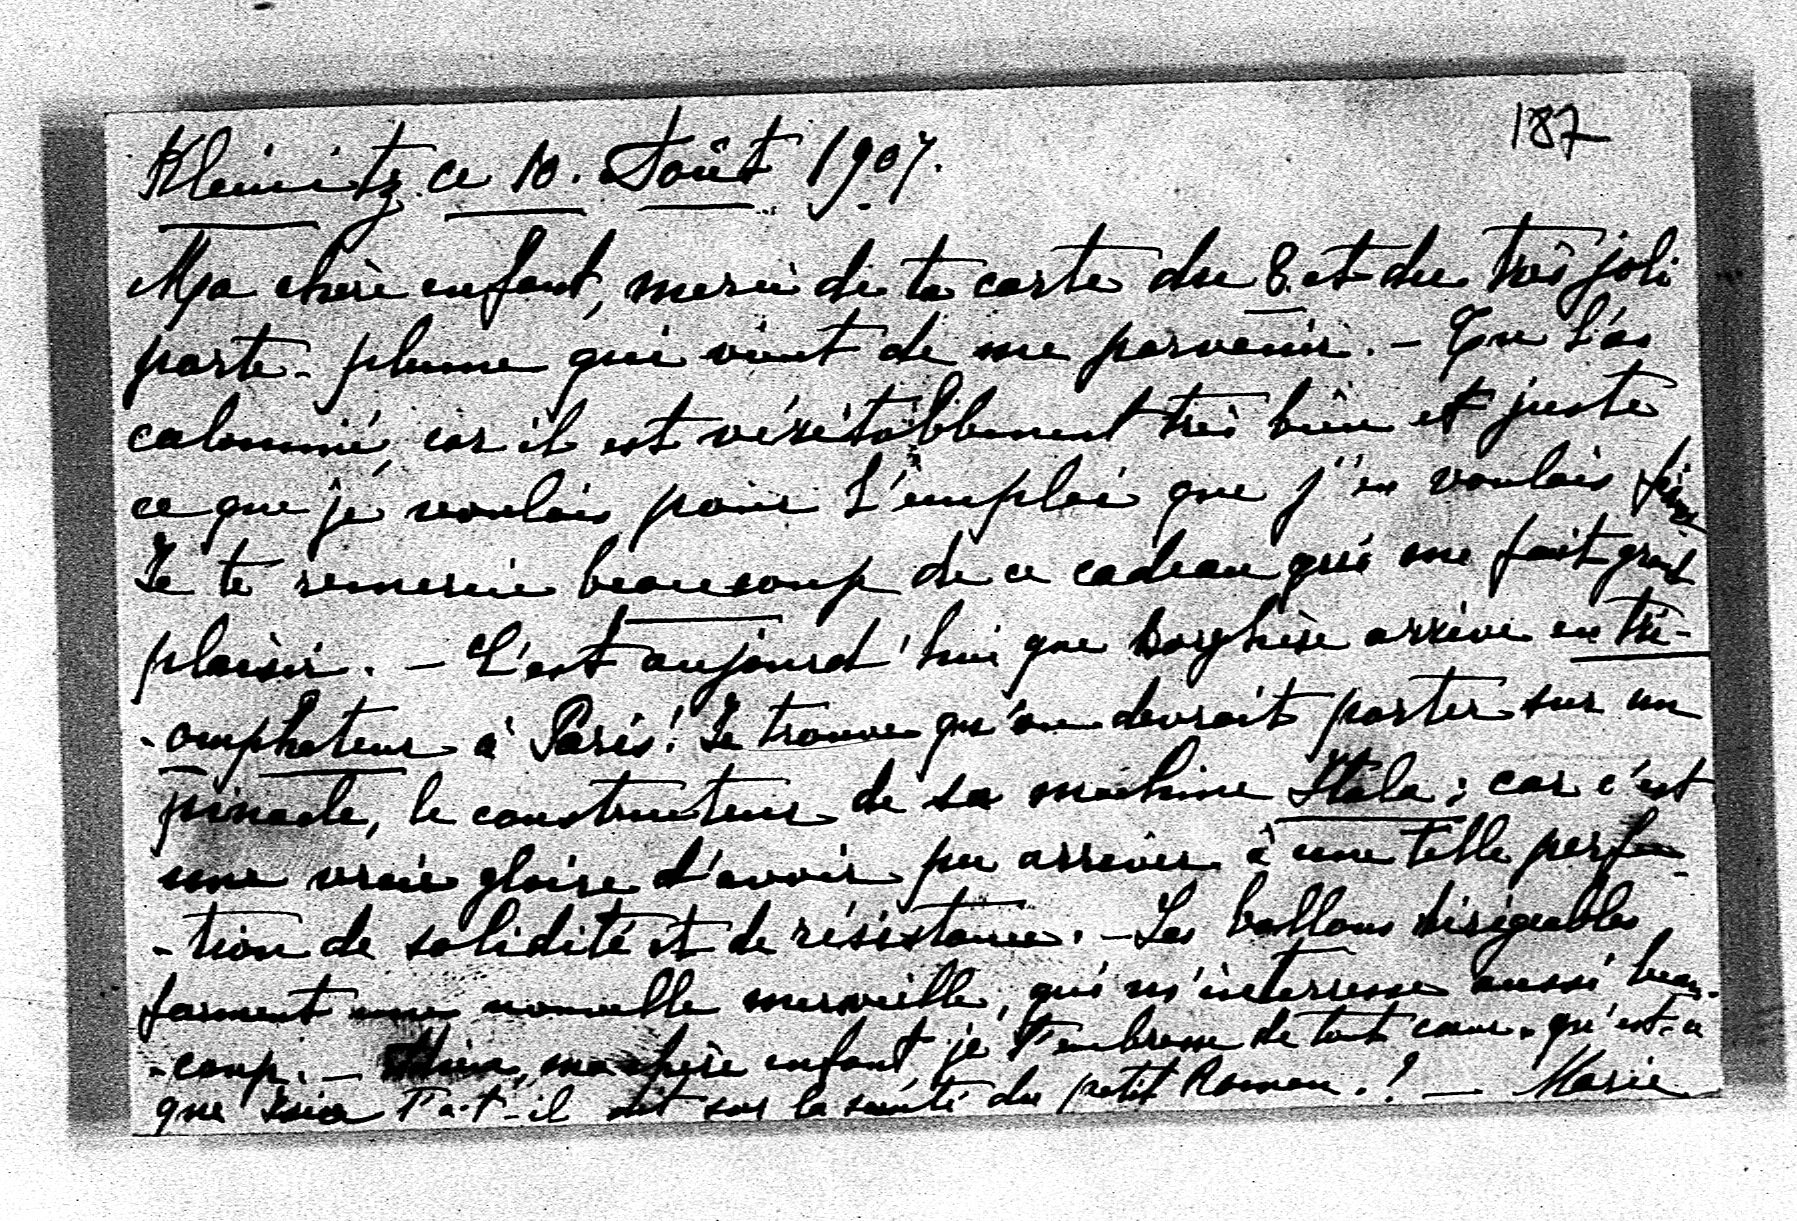 187
Kleinitz ce 10. Août 1907.
Ma chère enfant, merci de ta carte du 8. et du très joli
porte-plume qui vient de me parvenir. – Tu l'as
calomnié, car il est véritablement très bien et juste
ce que je voulais pour l'emploi que j'en voulais faire
Je te remercie beaucoup de ce cadeau qui me fait grand
plaisir. – C'est aujourd'hui que Borghèse arrive en tri-
-omphateur à Paris! Je trouve qu'on devrait porter sur un
pinacle, le constructeur de sa machine Itala; car c'est
une vraie gloire d'avoir pu arriver à une telle perfec-
-tion de solidité et de résistance. – Les ballons dirigeables
forment une nouvelle merveille, qui m'interresse aussi beau-
-coup. – Adieu, ma chère enfant, je t'embrasse de tout cœur. qu'est-ce
que t'a-t-il dit sur la santé du petit Roman.? – Marie